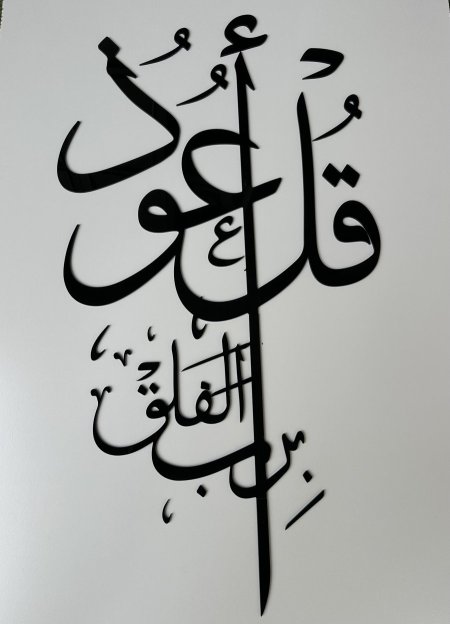 قُلْ أَعُوذُ
بِرَبِّ الْفَلَقِ